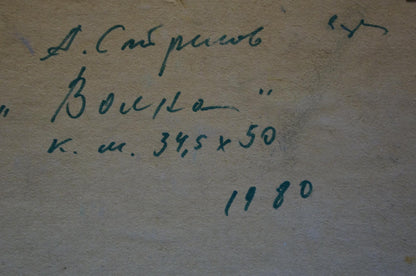 А. Стрилов
"Волна"
к. м. 34,5 х 50
1980